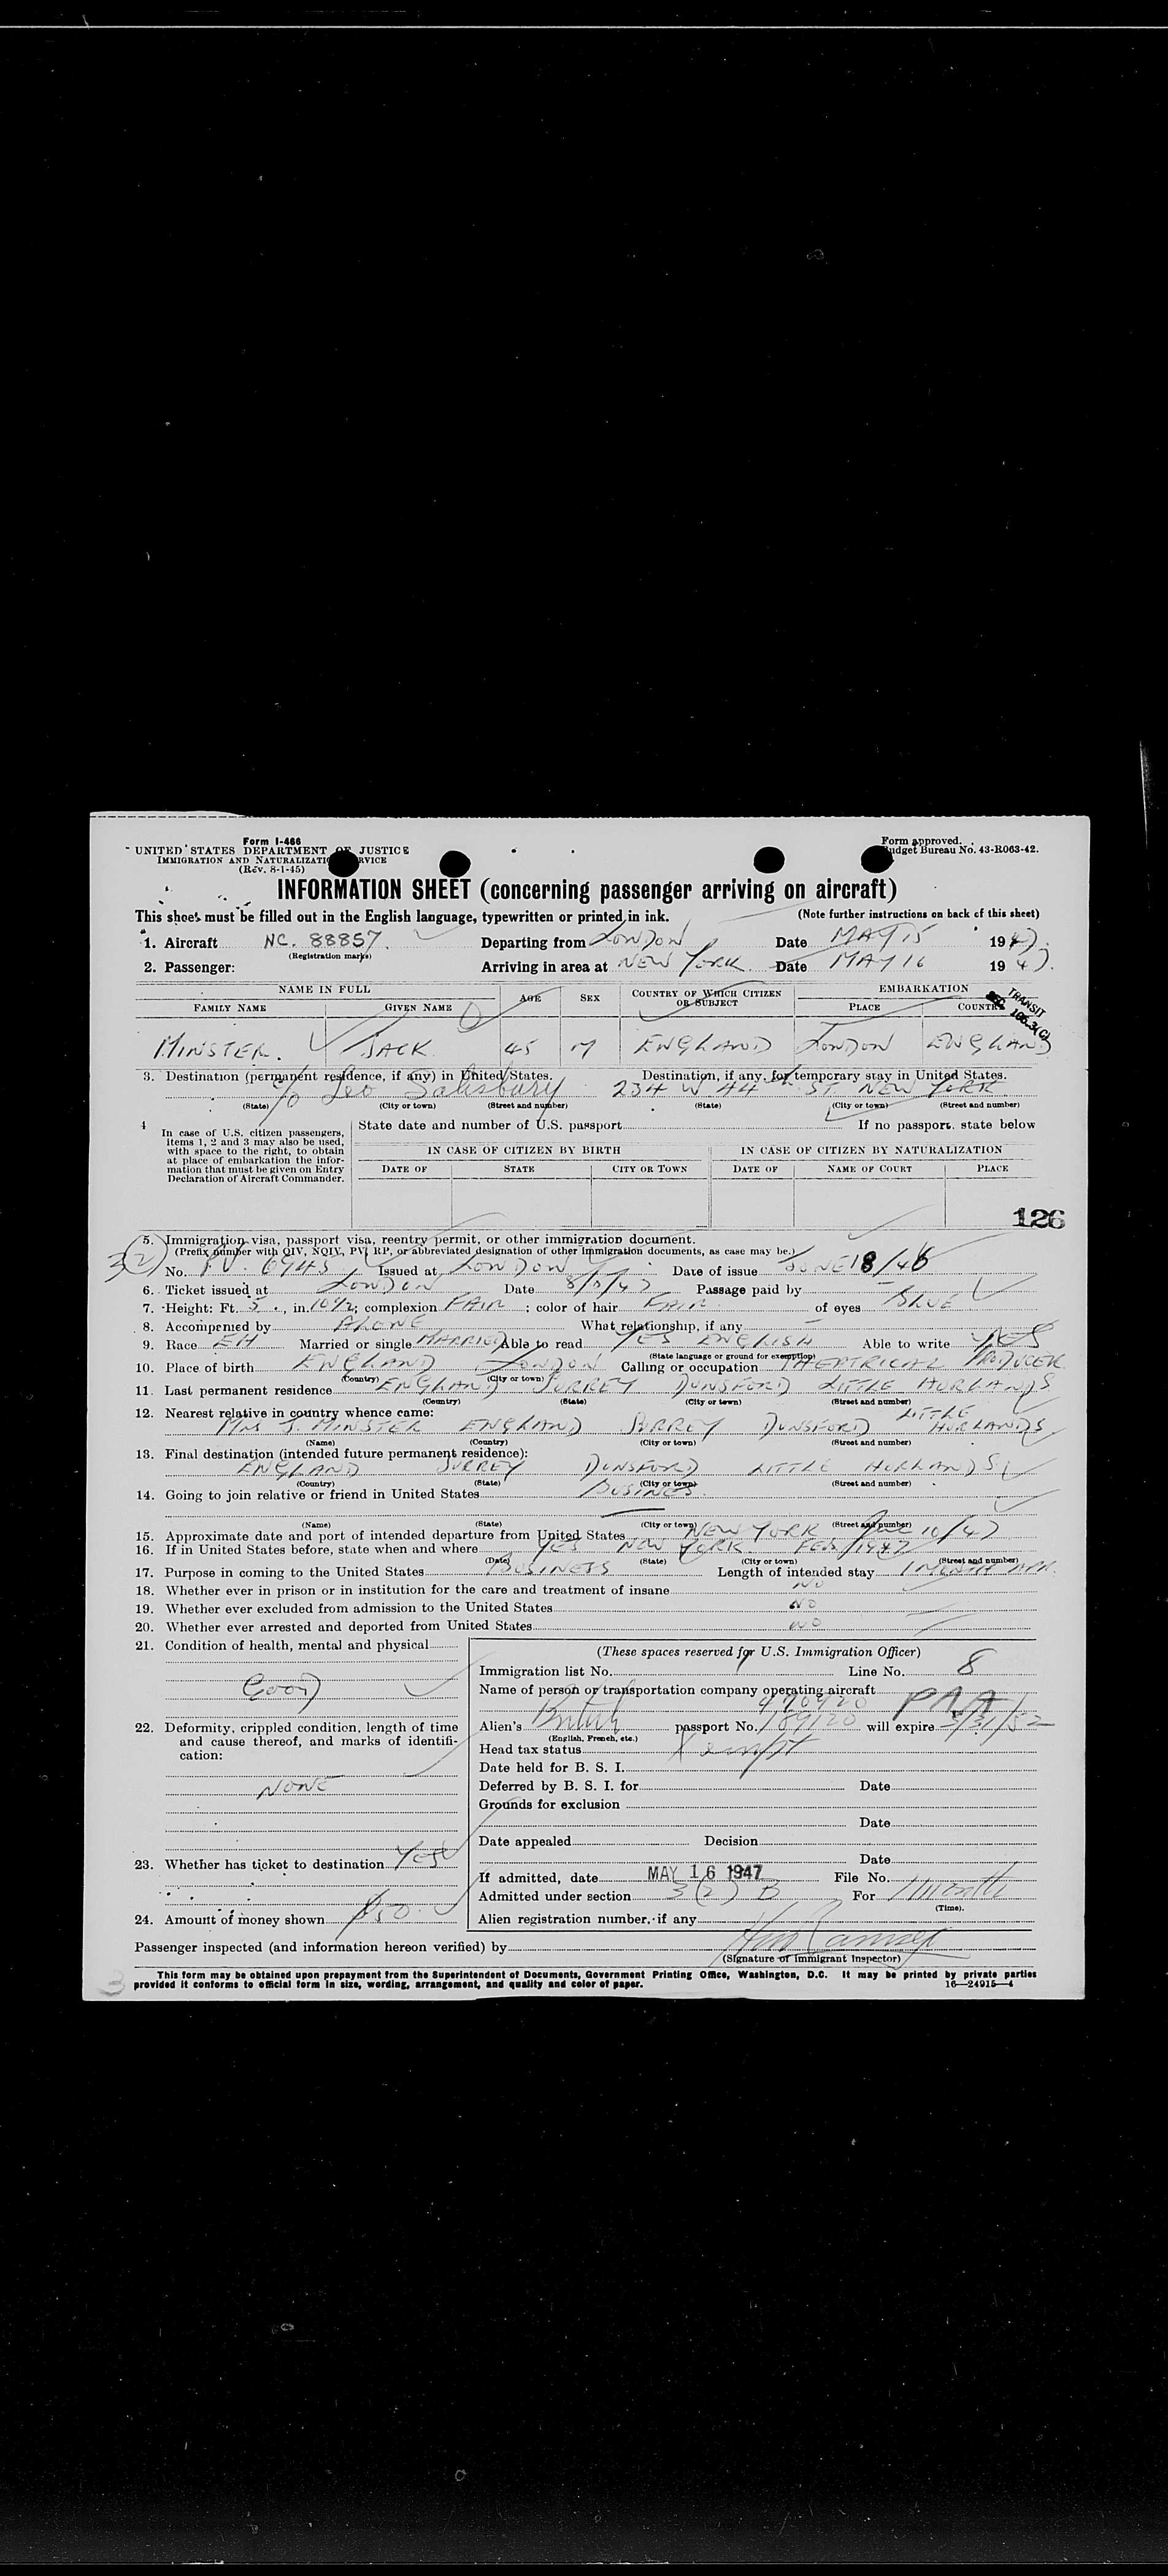 Form I-466
UNITED STATES DEPARTMENT OF JUSTICE
IMMIGRATION AND NATURALIZATION SERVICE
(Rev. 8-1-45)
Form approved.
Budget Bureau No. 43-R063-42.
INFORMATION SHEET (concerning passenger arriving on aircraft)
This sheet must be filled out in the English language, typewritten or printed in ink. (Note further instructions on back of this sheet)
1. Aircraft NC. 88857. Departing from LONDON Date MAY 15 1947.
(Registration marks)
2. Passenger: Arriving in area at NEW YORK Date MAY 16 1947.
NAME IN FULL AGE SEX COUNTRY OF WHICH CITIZEN OR SUBJECT EMBARKATION
FAMILY NAME GIVEN NAME PLACE COUNTRY
TRANSIT
SEC. 106.3(C)
MINSTER. JACK 45 M ENGLAND LONDON ENGLAND
3. Destination (permanent residence, if any) in United States. Destination, if any, for temporary stay in United States.
c/o Leo Salisbury 234 W 44th ST. NEW YORK
(State) (City or town) (Street and number) (State) (City or town) (Street and number)
4 In case of U.S. citizen passengers, items 1, 2 and 3 may also be used, with space to the right, to obtain at place of embarkation the information that must be given on Entry Declaration of Aircraft Commander.
State date and number of U.S. passport If no passport, state below
IN CASE OF CITIZEN BY BIRTH IN CASE OF CITIZEN BY NATURALIZATION
DATE OF STATE CITY OR TOWN DATE OF NAME OF COURT PLACE
126
5. Immigration visa, passport visa, reentry permit, or other immigration document.
(Prefix number with QIV, NQIV, PV, RP, or abbreviated designation of other immigration documents, as case may be.)
3(2) No. PV. 6945 Issued at LONDON Date of issue JUNE 18/46
6. Ticket issued at LONDON Date 8/5/47 Passage paid by —
7. Height: Ft. 5, in. 10 1/2; complexion FAIR; color of hair FAIR of eyes BLUE
8. Accompanied by ALONE What relationship, if any —
9. Race EH Married or single MARRIED Able to read YES ENGLISH Able to write YES
(State language or ground for exemption)
10. Place of birth ENGLAND LONDON Calling or occupation THEATRICAL PRODUCER
(Country) (City or town)
11. Last permanent residence ENGLAND SURREY DUNSFORD LITTLE HURLANDS
(Country) (State) (City or town) (Street and number)
12. Nearest relative in country whence came:
MRS J. MINSTER ENGLAND SURREY DUNSFORD LITTLE HURLANDS
(Name) (Country) (City or town) (Street and number)
13. Final destination (intended future permanent residence):
ENGLAND SURREY DUNSFORD LITTLE HURLANDS
(Country) (State) (City or town) (Street and number)
14. Going to join relative or friend in United States BUSINESS.
(Name) (State) (City or town) (Street and number)
15. Approximate date and port of intended departure from United States NEW YORK June 10/47
16. If in United States before, state when and where YES NEW YORK. FEB/1947
(Date) (State) (City or town) (Street and number)
17. Purpose in coming to the United States BUSINESS Length of intended stay 1 MONTH APR.
18. Whether ever in prison or in institution for the care and treatment of insane NO
19. Whether ever excluded from admission to the United States NO
20. Whether ever arrested and deported from United States NO
21. Condition of health, mental and physical
GOOD
22. Deformity, crippled condition, length of time and cause thereof, and marks of identification:
NONE
23. Whether has ticket to destination YES
24. Amount of money shown $50.
(These spaces reserved for U.S. Immigration Officer)
Immigration list No. Line No. 8
Name of person or transportation company operating aircraft
PAA
Alien's British passport No. 189120 will expire 5/31/52
(English, French, etc.)
Head tax status Exempt
Date held for B. S. I.
Deferred by B. S. I. for Date
Grounds for exclusion
Date
Date appealed Decision
Date
If admitted, date MAY 16 1947 File No.
Admitted under section 3(2) B For 1 month
(Time).
Alien registration number, if any
Passenger inspected (and information hereon verified) by
(Signature of Immigrant Inspector)
This form may be obtained upon prepayment from the Superintendent of Documents, Government Printing Office, Washington, D.C. It may be printed by private parties
provided it conforms to official form in size, wording, arrangement, and quality and color of paper. 16—24915—4
3